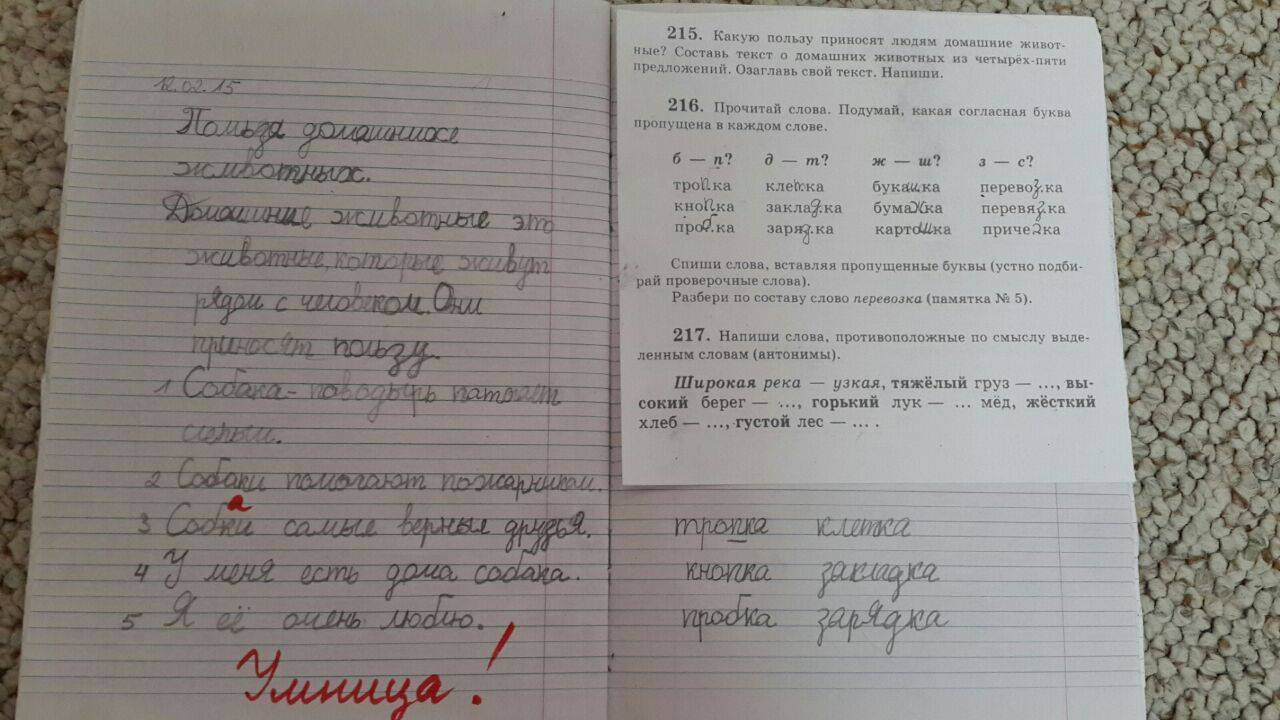 12.02.15
Польза домашних
животных.
Домашние животные это
животные, которые живут
рядом с человеком. Они
приносят пользу.
1 Собака - поводырь
слепым.
2 Собаки помогают пожарником.
а
3 Собки самые верные друзья.
4 У меня есть дома собака.
5 Я её очень люблю.
Умница!
215. Какую пользу приносят людям домашние живот-
ные? Составь текст о домашних животных из четырёх-пяти
предложений. Озаглавь свой текст. Напиши.
216. Прочитай слова. Подумай, какая согласная буква
пропущена в каждом слове.
б — п? д — т? ж — ш? з — с?
тропка клетка букашка перевозка
кнопка закладка бумажка перевязка
пробка зарядка картошка
Спиши слова, вставляя пропущенные буквы (устно подби-
рай проверочные слова).
Разбери по составу слово перевозка (памятка № 5).
217. Напиши слова, противоположные по смыслу выде-
ленным словам (антонимы).
Широкая река — узкая, тяжёлый груз — ..., вы-
сокий берег — ..., горький лук — ... мёд, жёсткий
хлеб — ..., густой лес — ... .
тропка клетка
кнопка закладка
пробка зарядка